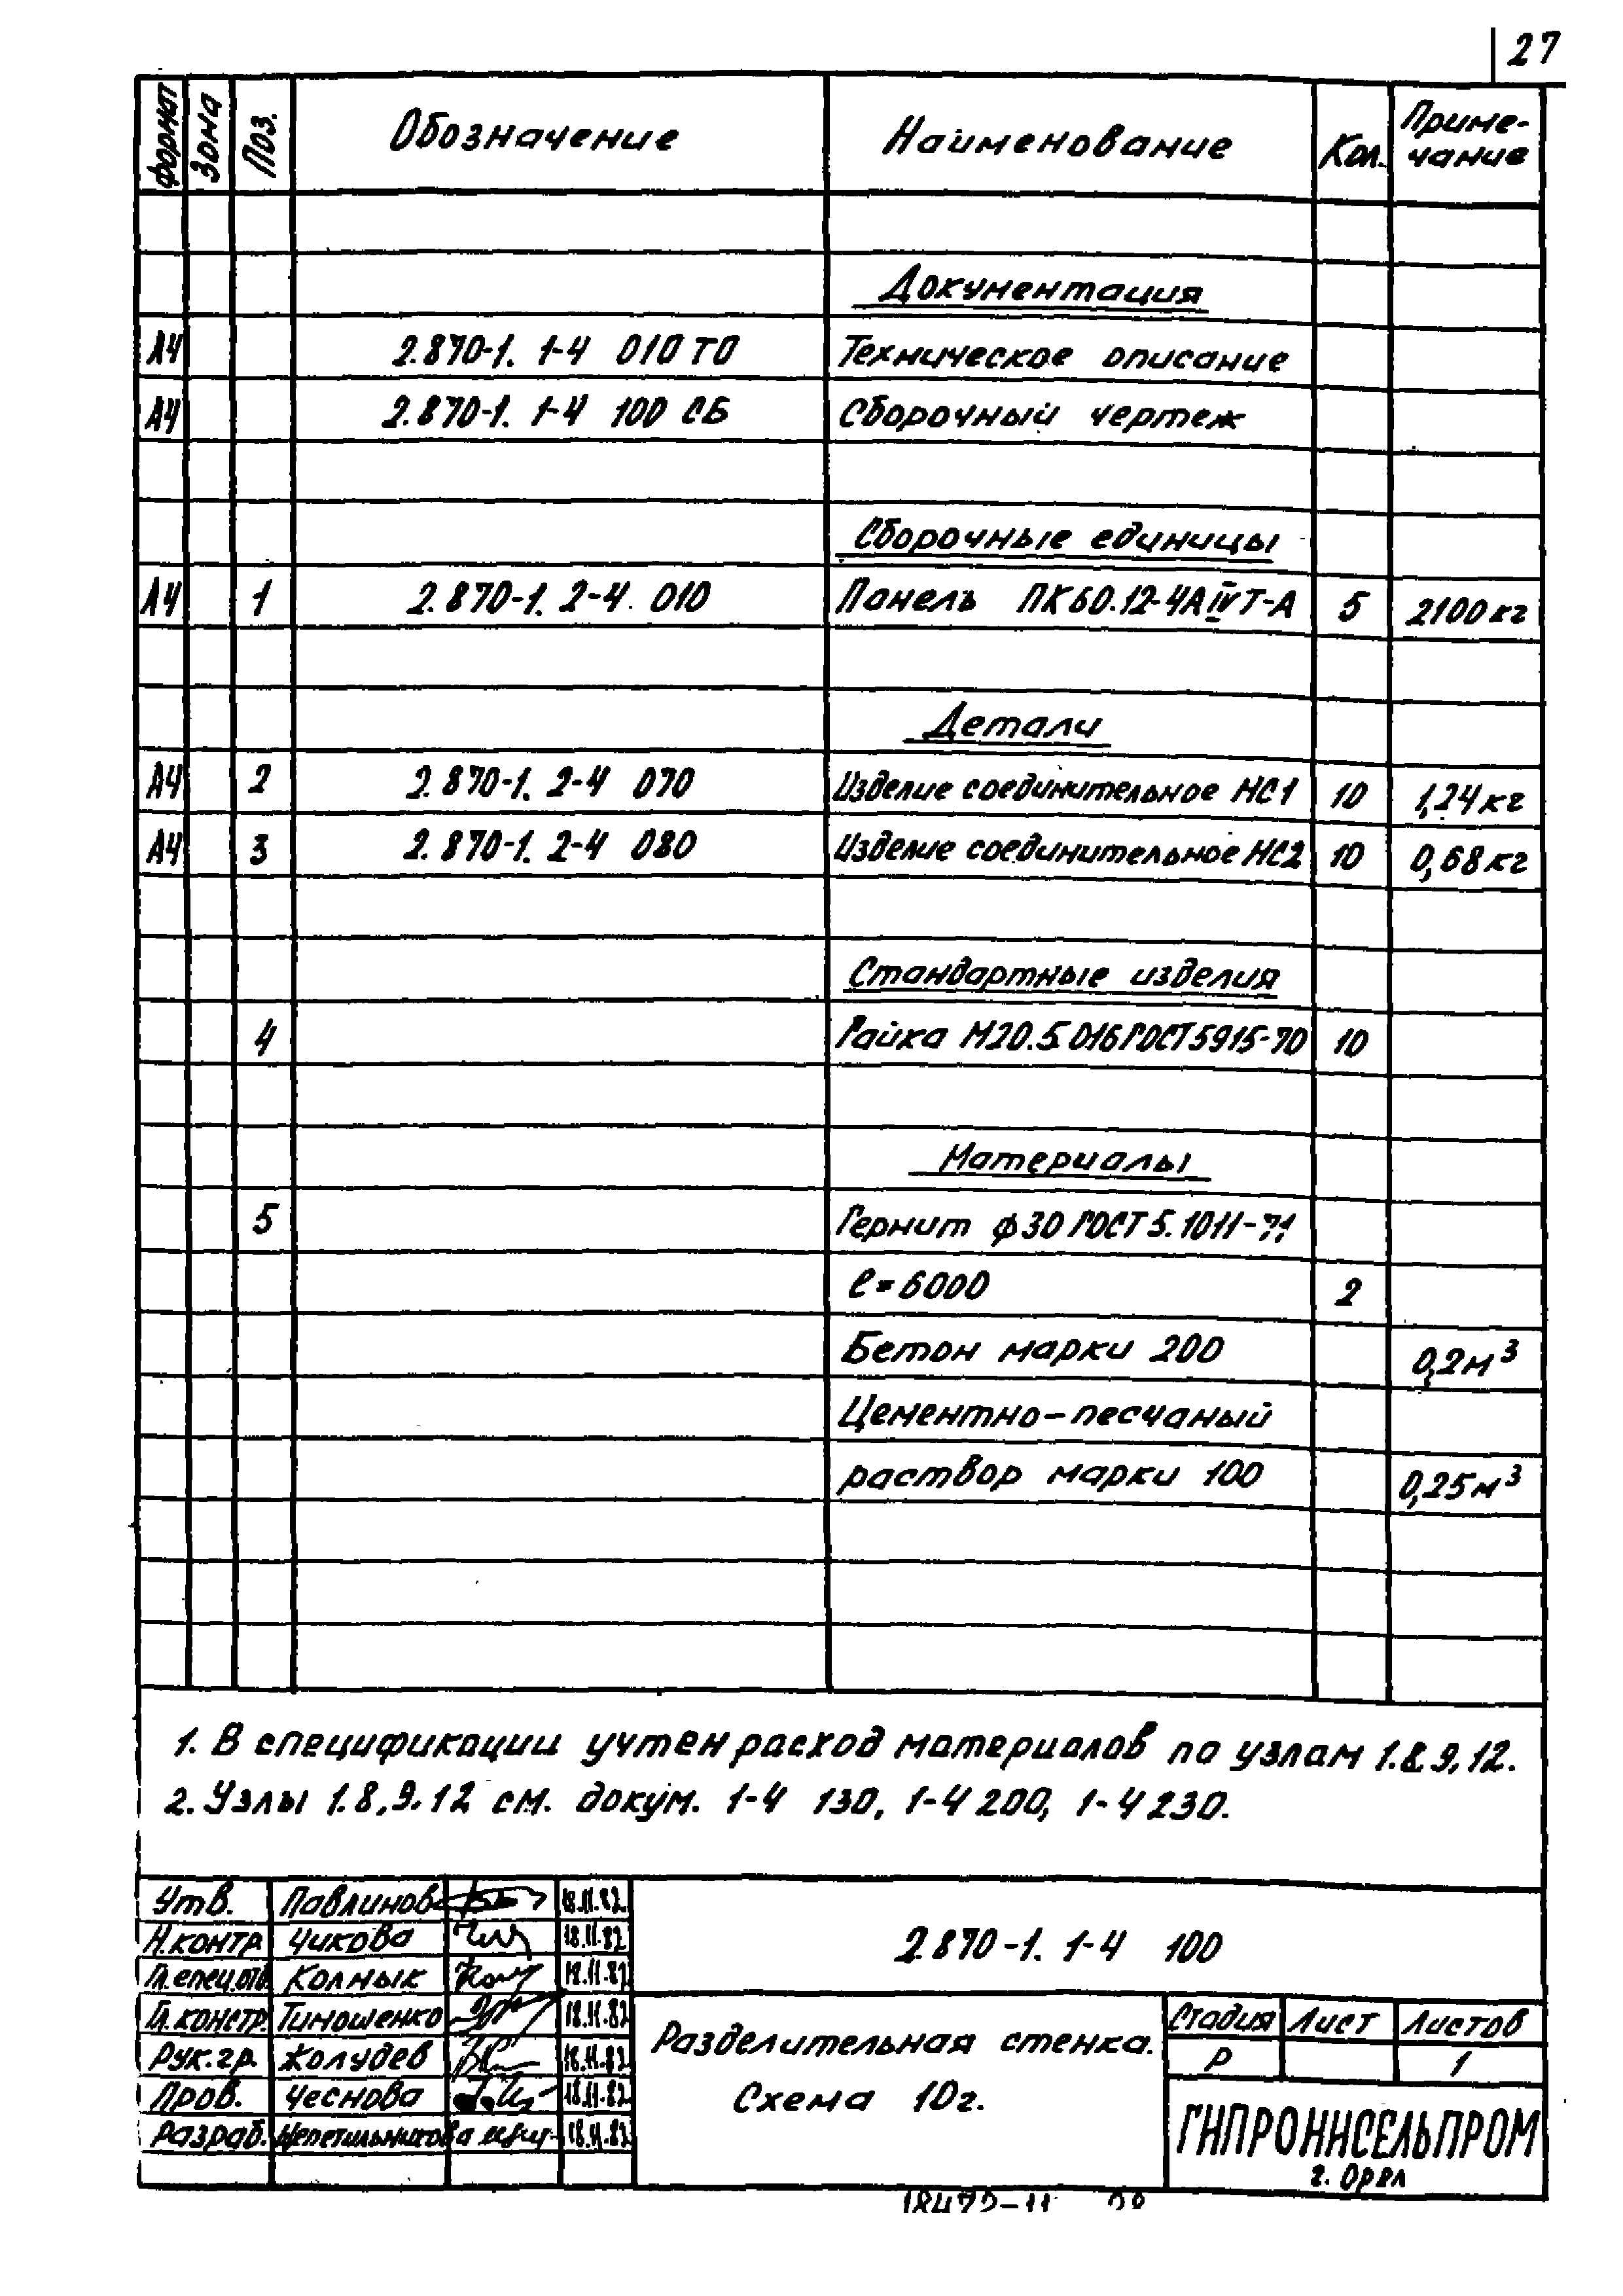 27
Формат Зона Поз. Обозначение Наименование Кол. Приме-
чание
Документация
А4 2.870-1. 1-4 010 ТО Техническое описание
А4 2.870-1. 1-4 100 СБ Сборочный чертеж
Сборочные единицы
А4 1 2.870-1. 2-4. 010 Панель ПК60.12-4АIVТ-А 5 2100 кг
Детали
А4 2 2.870-1. 2-4 070 Изделие соединительное НС1 10 1,24 кг
А4 3 2.870-1. 2-4 080 Изделие соединительное НС2 10 0,68 кг
Стандартные изделия
4 Гайка М20.5.016 ГОСТ 5915-70 10
Материалы
5 Гернит ф30 ГОСТ 5.1011-71
ℓ=6000 2
Бетон марки 200 0,2 м³
Цементно-песчаный
раствор марки 100 0,25 м³
1. В спецификации учтен расход материалов по узлам 1.8.9,12.
2. Узлы 1.8,9.12 см. докум. 1-4 130, 1-4 200, 1-4 230.
Утв. Павлинов 18.11.82
Н.контр Чикова 18.11.82
Гл.спец.отд. Колнык 18.11.82
Гл.констр. Тимошенко 18.11.82
Рук.гр. Жолудев 18.11.82
Пров. Чеснова 18.11.82
Разраб. 18.11.82
2.870-1. 1-4 100
Разделительная стенка.
Схема 10г.
Стадия Лист Листов
Р 1
ГИПРОНИСЕЛЬПРОМ
г. Орел